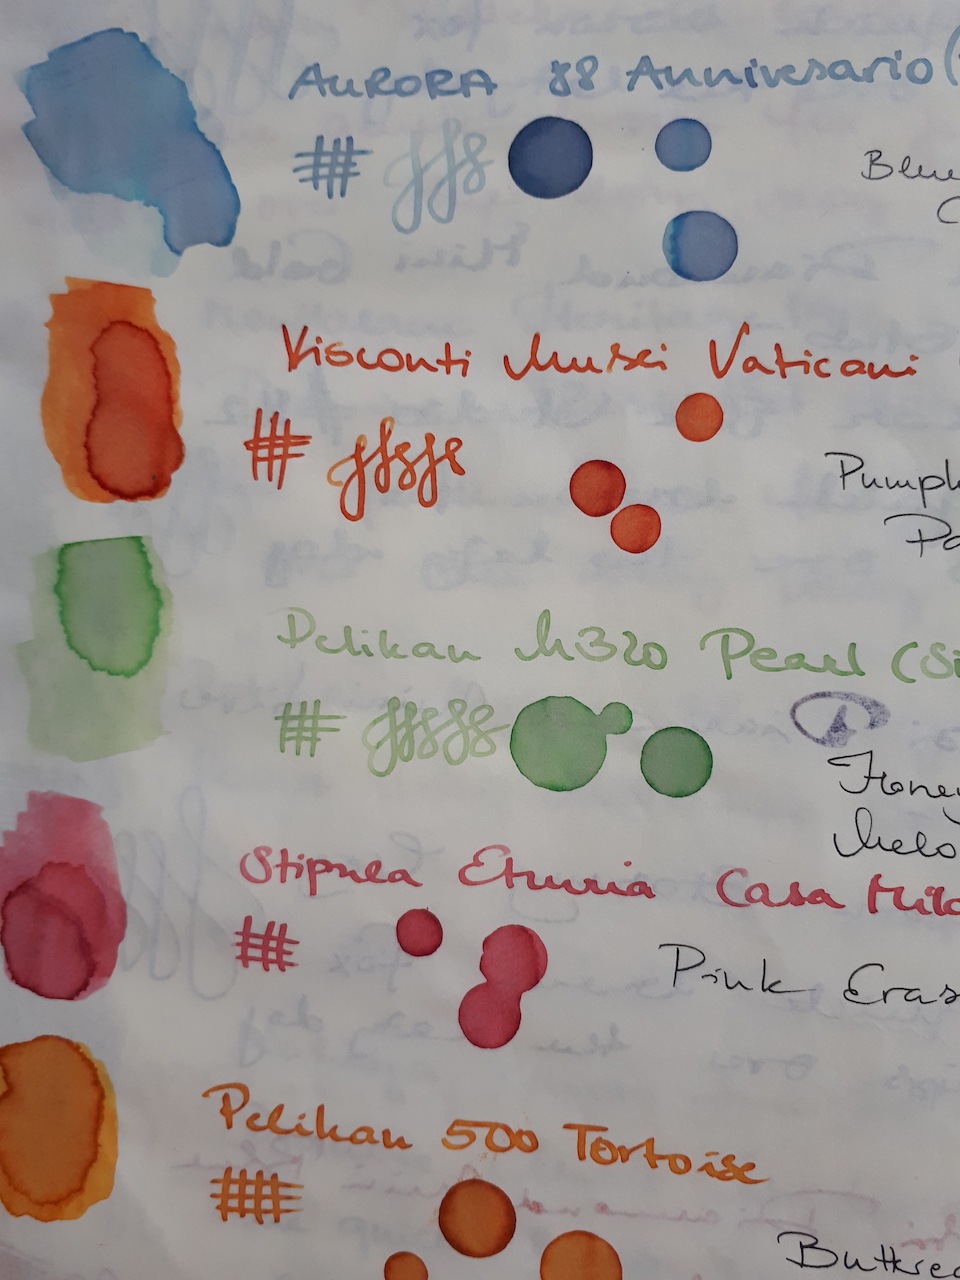 AURORA 88 Anniversario (
Blue
Visconti Musei Vaticani
Pumpk
Pa
Pelikan M320 Pearl (Si
Honey
Melo
Stipula Etruria Casa Mila
Pink Eras
Pelikan 500 Tortoise